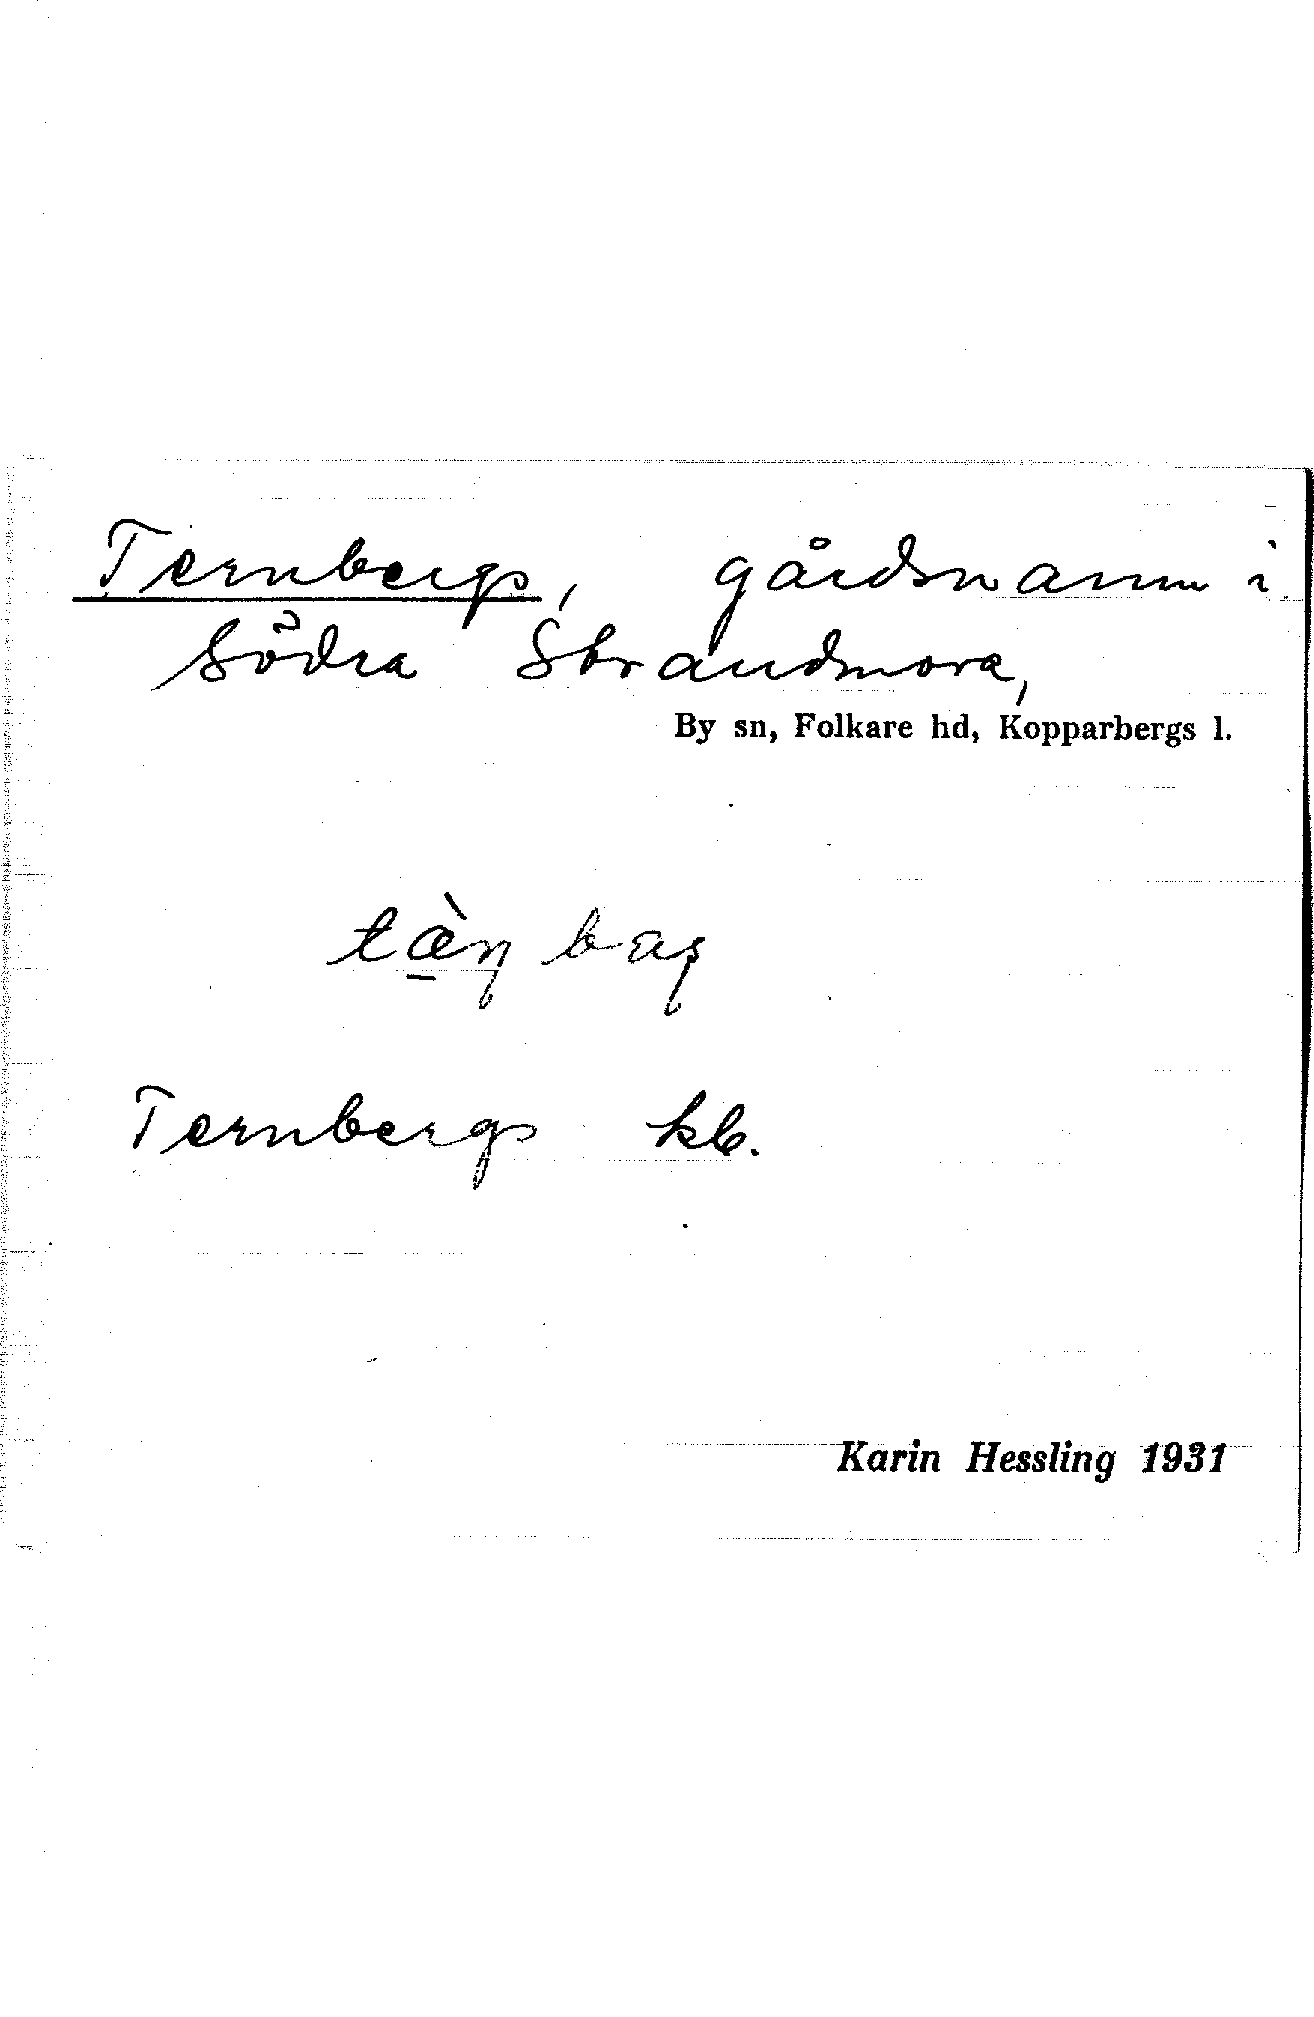 Ternbergs, gårdsnamn i
Södra Strandmora,
By sn, Folkare hd, Kopparbergs l.
tæ̠̀ɳ baʂ
Ternbergs kb.
Karin Hessling 1931